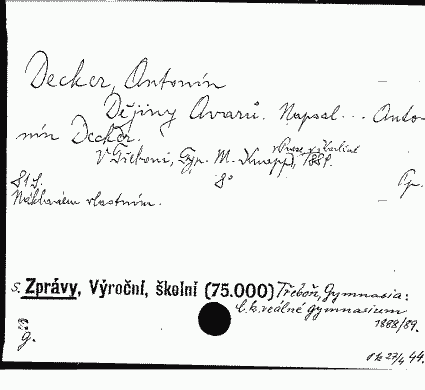 Decker, Antonín
Dějiny Avarů. Napsal... Anto-
nín Decker.
V Třeboni, Typ. M. Knapp, 1889.
81 S. 8° Cp.
Nákladem vlastním.
S. Zprávy, Výroční, školní (75.000) Třeboň, Gymnasia:
C. k. reálné gymnasium
1888/89.
g.
27/4 44.